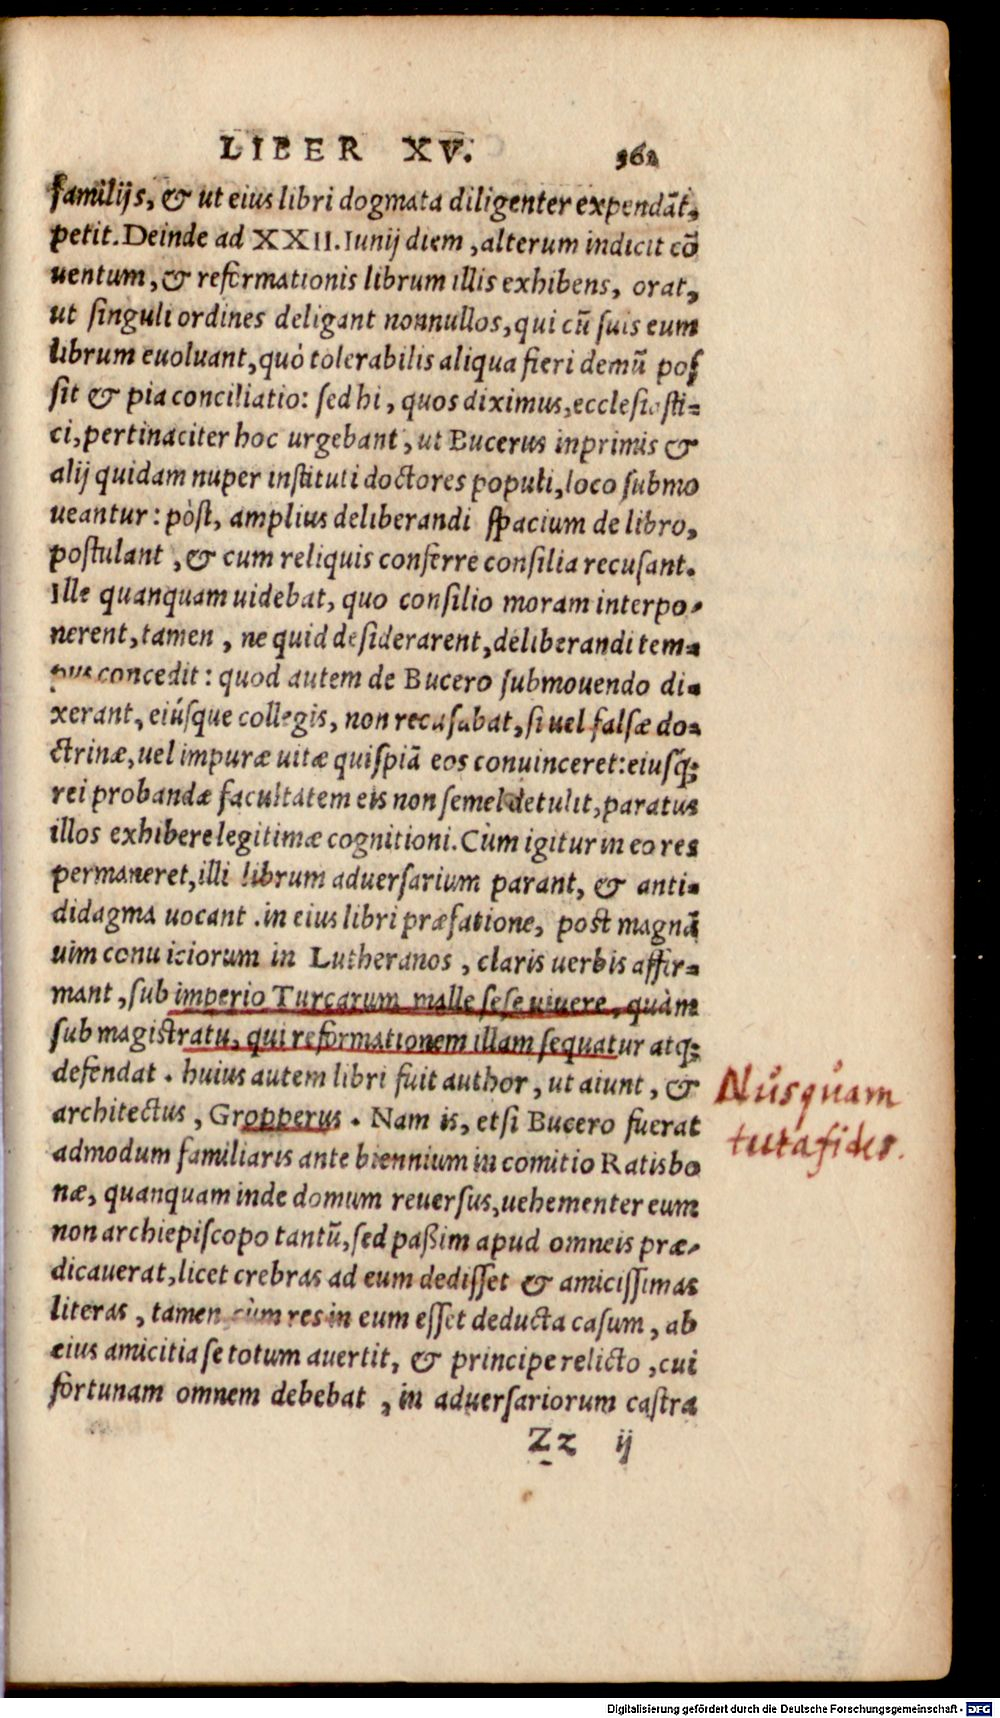 LIBER XV. 362
familijs, & ut eius libri dogmata diligenter expendāt,
petit. Deinde ad XXII. Iunij diem, alterum indicit cō
uentum, & reformationis librum illis exhibens, orat,
ut singuli ordines deligant nonnullos, qui cū suis eum
librum euoluant, quò tolerabilis aliqua fieri demū pos
sit & pia conciliatio: sed hi, quos diximus, ecclesiasti=
ci, pertinaciter hoc urgebant, ut Bucerus inprimis &
alij quidam nuper instituti doctores populi, loco submo
ueantur: pòst, amplius deliberandi spacium de libro,
postulant, & cum reliquis conferre consilia recusant.
Ille quanquam uidebat, quo consilio moram interpo-
nerent, tamen, ne quid desiderarent, deliberandi tem=
pus concedit: quod autem de Bucero submouendo di=
xerant, eiúsque collegis, non recusabat, si uel falsæ do=
ctrinæ, uel impuræ uitæ quispiā eos conuinceret: eiusq́;
rei probandæ facultatem eis non semel detulit, paratus
illos exhibere legitimæ cognitioni. Cùm igitur in eo res
permaneret, illi librum aduersarium parant, & anti=
didagma uocant. in eius libri præfatione, post magnā
uim conuiciorum in Lutheranos, claris uerbis affir=
mant, sub imperio Turcarum malle sese uiuere, quàm
sub magistratu, qui reformationem illam sequatur atq;
defendat. huius autem libri fuit author, ut aiunt, &
architectus, Gropperus. Nam is, etsi Bucero fuerat
admodum familiaris ante biennium in comitio Ratisbo
næ, quanquam inde domum reuersus, uehementer eum
non archiepiscopo tantū, sed paßim apud omneis præ-
dicauerat, licet crebras ad eum dedisset & amicissimas
literas, tamen cùm res in eum esset deducta casum, ab
eius amicitia se totum auertit, & principe relicto, cui
fortunam omnem debebat, in aduersariorum castra
Zz ij
Nusquam
tuta fides.
Digitalisierung gefördert durch die Deutsche Forschungsgemeinschaft - DFG